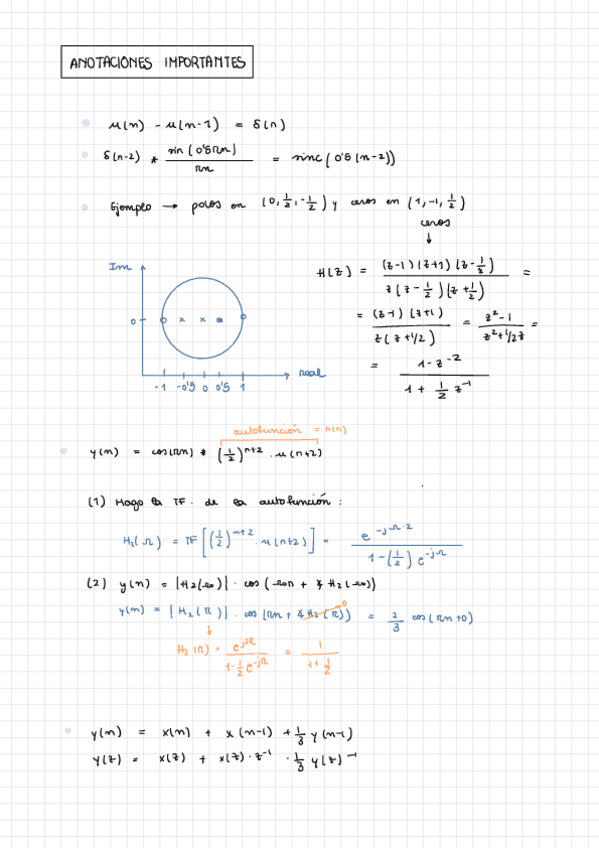 ANOTACIONES IMPORTANTES
u(n) - u(n-1) = δ(n)
δ(n-2) * sin(0'5πn) / πn = sinc(0'5(n-2))
Ejemplo → polos en (0, 1/2, -1/2) y ceros en (1, -1, 1/2)
ceros
↓
H(z) = (z-1)(z+1)(z-1/2) / z(z-1/2)(z+1/2) =
= (z-1)(z+1) / z(z+1/2) = z²-1 / z²+1/2z =
= 1-z⁻² / 1 + 1/2 z⁻¹
Im
0
real
-1 -0'5 0 0'5 1
autofunción = h(n)
y(n) = cos(πn) * (1/2)ⁿ⁺² · u(n+2)
(1) Hago la TF. de la autofunción :
H₂(Ω) = TF[(1/2)ⁿ⁺² · u(n+2)] = e^-jΩ·2 / 1-(1/2)e^-jΩ
(2) y(n) = |H₂(Ω0)| · cos(Ω0n + ∡H₂(Ω0))
y(n) = |H₂(π)| · cos(πn + ∡H₂(π)) = 2/3 cos(πn+0)
0
↓
H₂(π) = e^j2π / 1-1/2 e^-jπ = 1 / 1+1/2
y(n) = x(n) + x(n-1) + 1/3 y(n-1)
Y(z) = x(z) + x(z)·z⁻¹ · 1/3 y(z)⁻¹